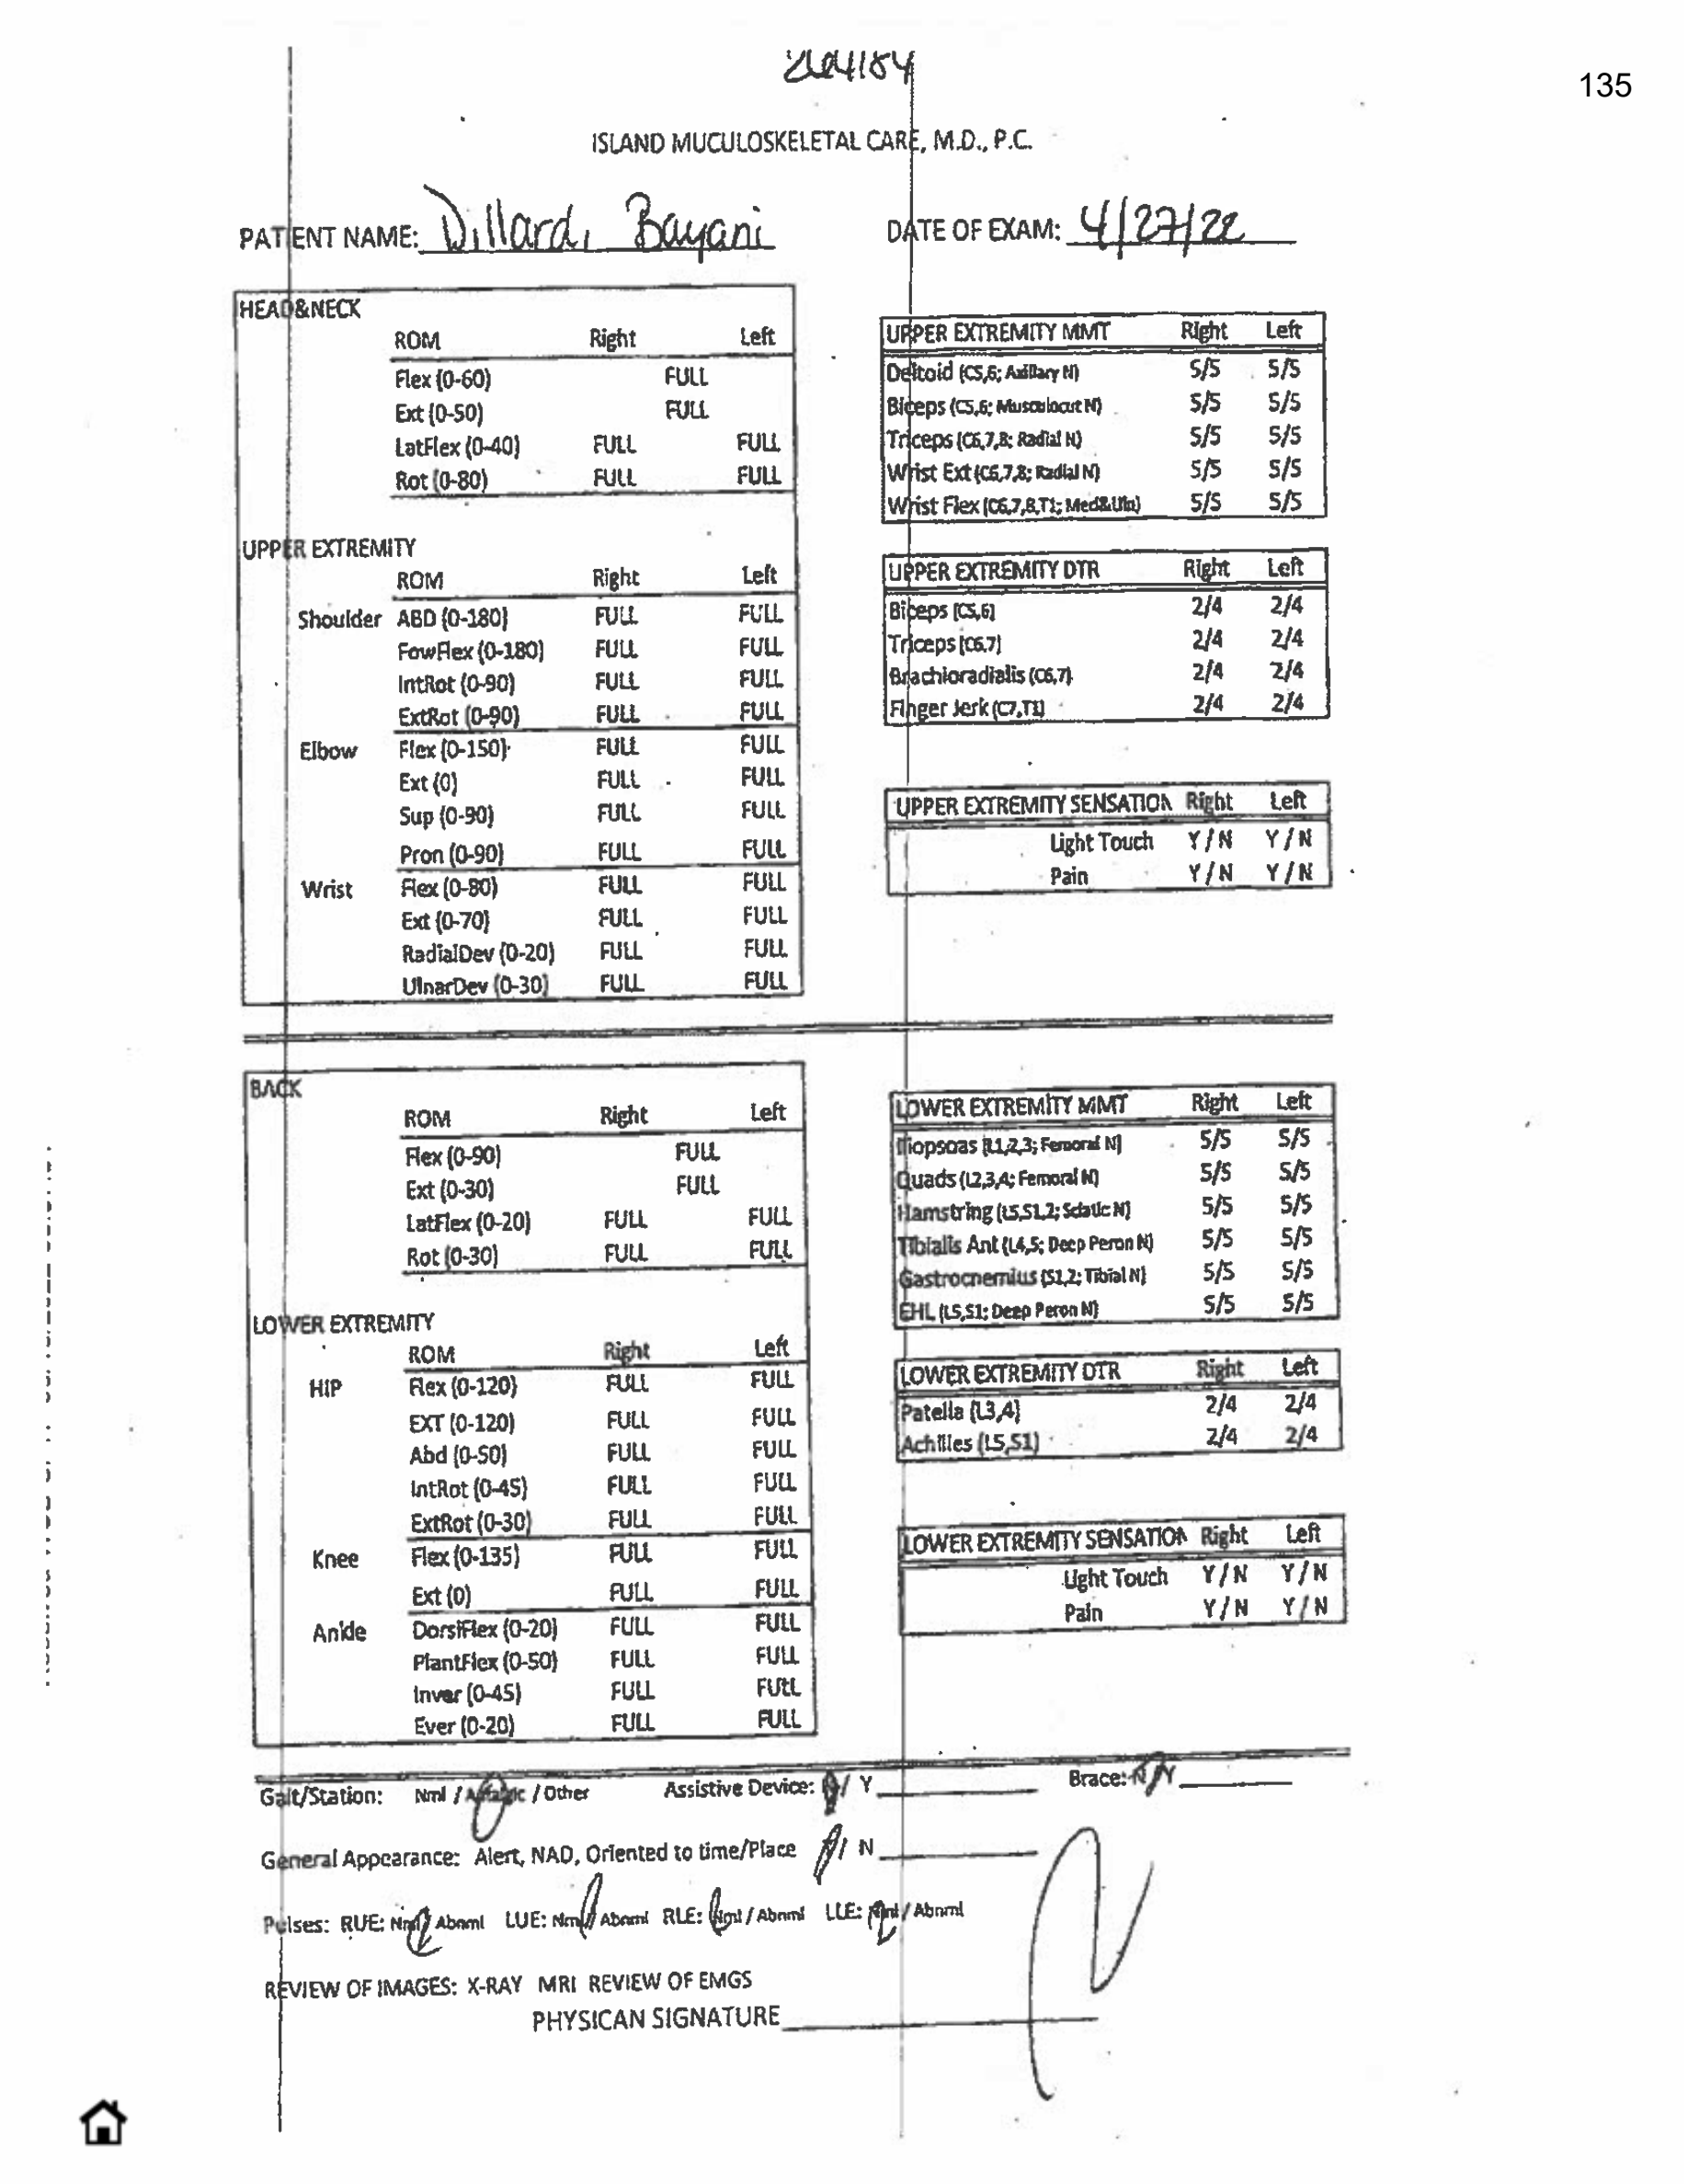 135
ISLAND MUCULOSKELETAL CARE, M.D., P.C.
PATIENT NAME: Dillard, Bayani
DATE OF EXAM: 4/27/22
HEAD&NECK
ROM Right Left
Flex (0-60) FULL
Ext (0-50) FULL
LatFlex (0-40) FULL FULL
Rot (0-80) FULL FULL
UPPER EXTREMITY
ROM Right Left
Shoulder ABD (0-180) FULL FULL
FowFlex (0-180) FULL FULL
IntRot (0-90) FULL FULL
ExtRot (0-90) FULL FULL
Elbow Flex (0-150) FULL FULL
Ext (0) FULL FULL
Sup (0-90) FULL FULL
Pron (0-90) FULL FULL
Wrist Flex (0-80) FULL FULL
Ext (0-70) FULL FULL
RadialDev (0-20) FULL FULL
UlnarDev (0-30) FULL FULL
UPPER EXTREMITY MMT Right Left
Deltoid (C5,6; Axillary N) 5/5 5/5
Biceps (C5,6; Musculocut N) 5/5 5/5
Triceps (C6,7,8; Radial N) 5/5 5/5
Wrist Ext (C6,7,8; Radial N) 5/5 5/5
Wrist Flex (C6,7,8,T1; Med&Uln) 5/5 5/5
UPPER EXTREMITY DTR Right Left
Biceps (C5,6) 2/4 2/4
Triceps (C6.7) 2/4 2/4
Brachioradialis (C6,7) 2/4 2/4
Finger Jerk (C7,T1) 2/4 2/4
UPPER EXTREMITY SENSATION Right Left
Light Touch Y / N Y / N
Pain Y / N Y / N
BACK
ROM Right Left
Flex (0-90) FULL
Ext (0-30) FULL
LatFlex (0-20) FULL FULL
Rot (0-30) FULL FULL
LOWER EXTREMITY
ROM Right Left
HIP Flex (0-120) FULL FULL
EXT (0-120) FULL FULL
Abd (0-50) FULL FULL
IntRot (0-45) FULL FULL
ExtRot (0-30) FULL FULL
Knee Flex (0-135) FULL FULL
Ext (0) FULL FULL
Ankle DorsiFlex (0-20) FULL FULL
PlantFlex (0-50) FULL FULL
Inver (0-45) FULL FULL
Ever (0-20) FULL FULL
LOWER EXTREMITY MMT Right Left
Iliopsoas (L1,2,3; Femoral N) 5/5 5/5
Quads (L2,3,4; Femoral N) 5/5 5/5
Hamstring (L5,S1,2; Sciatic N) 5/5 5/5
Tibialis Ant (L4,5; Deep Peron N) 5/5 5/5
Gastrocnemius (S1,2; Tibial N) 5/5 5/5
EHL (L5,S1; Deep Peron N) 5/5 5/5
LOWER EXTREMITY DTR Right Left
Patella (L3,4) 2/4 2/4
Achilles (L5,S1) 2/4 2/4
LOWER EXTREMITY SENSATION Right Left
Light Touch Y / N Y / N
Pain Y / N Y / N
Gait/Station: Nml / Antalgic / Other Assistive Device: N / Y Brace: N / Y
General Appearance: Alert, NAD, Oriented to time/Place Y / N
Pulses: RUE: Nml / Abnml LUE: Nml / Abnml RLE: Nml / Abnml LLE: Nml / Abnml
REVIEW OF IMAGES: X-RAY MRI REVIEW OF EMGS
PHYSICAN SIGNATURE